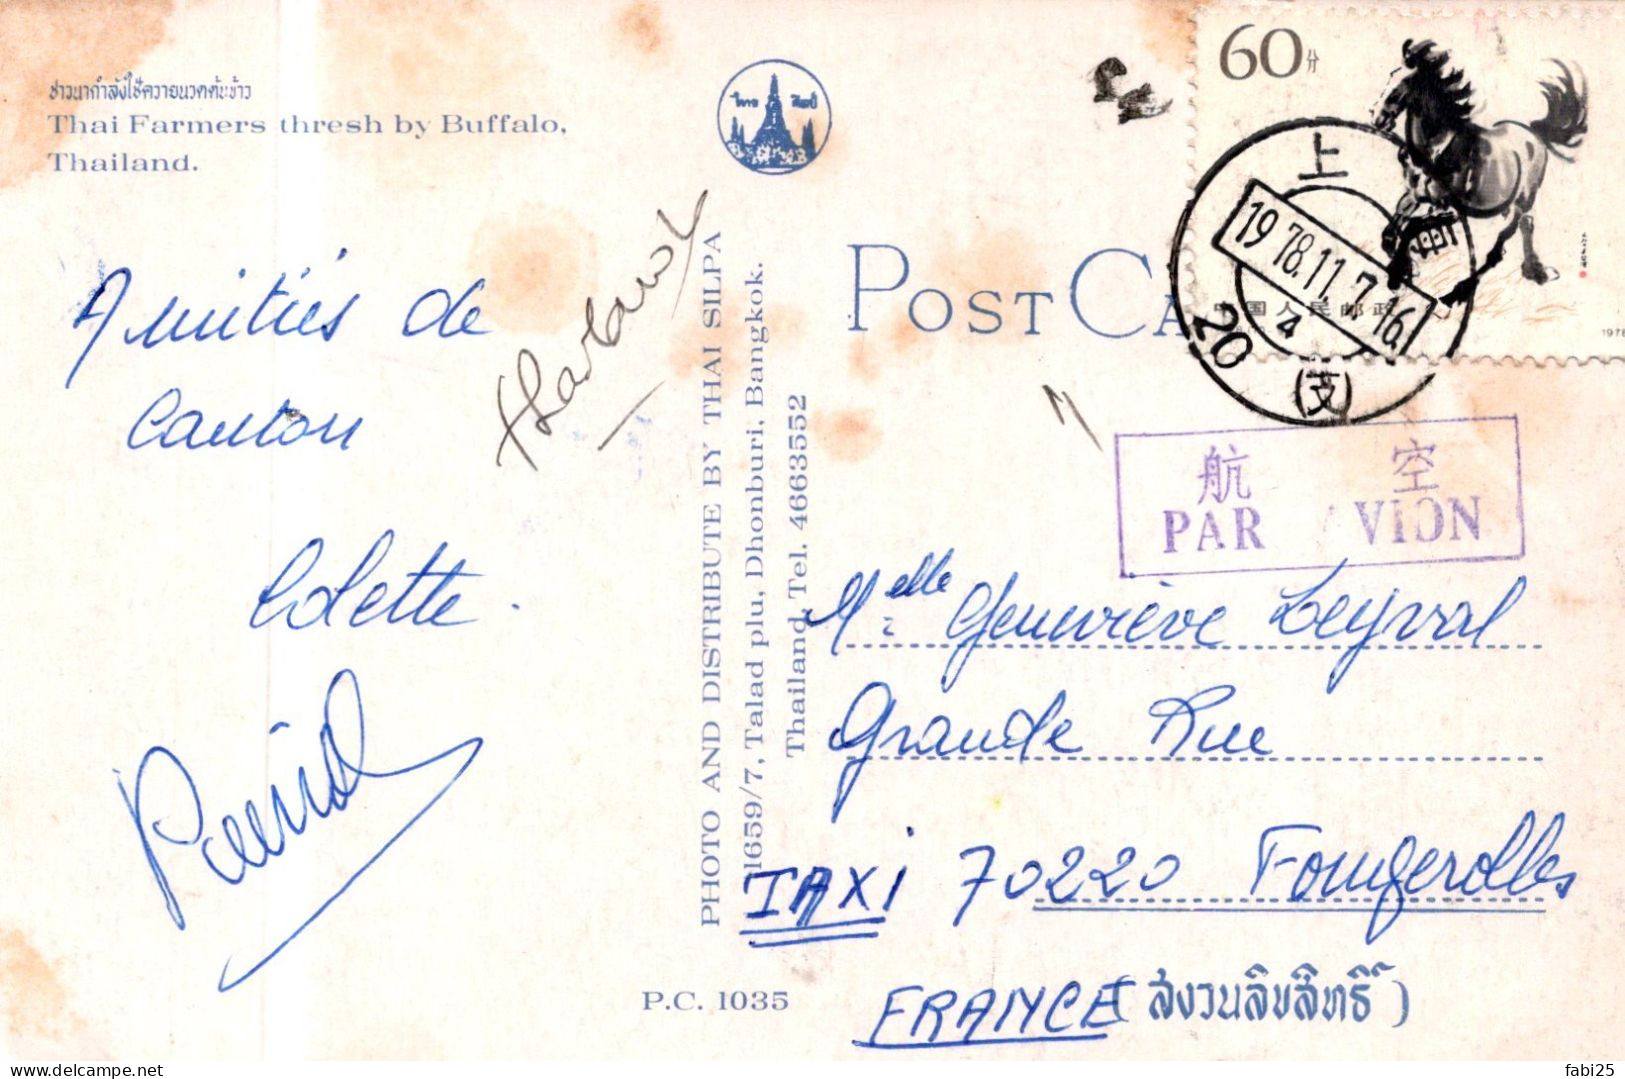 ชาวนากำลังใช้ควายนวดต้นข้าว
Thai Farmers thresh by Buffalo,
Thailand.
ไทย ศิลป์
Amitiés de
Canton
Colette.
PHOTO AND DISTRIBUTE BY THAI SILPA
1659/7, Talad plu, Dhonburi, Bangkok.
Thailand, Tel. 4663552
P.C. 1035
POST CA
60分
中国人民邮政
1978
上
1978.11.7 16
4
20
(支)
航 空
PAR AVION
Melle Geneviève Leyval
Grande Rue
TAXI 70220 Fougerolles
FRANCE
(สงวนลิขสิทธิ์)
fabi25